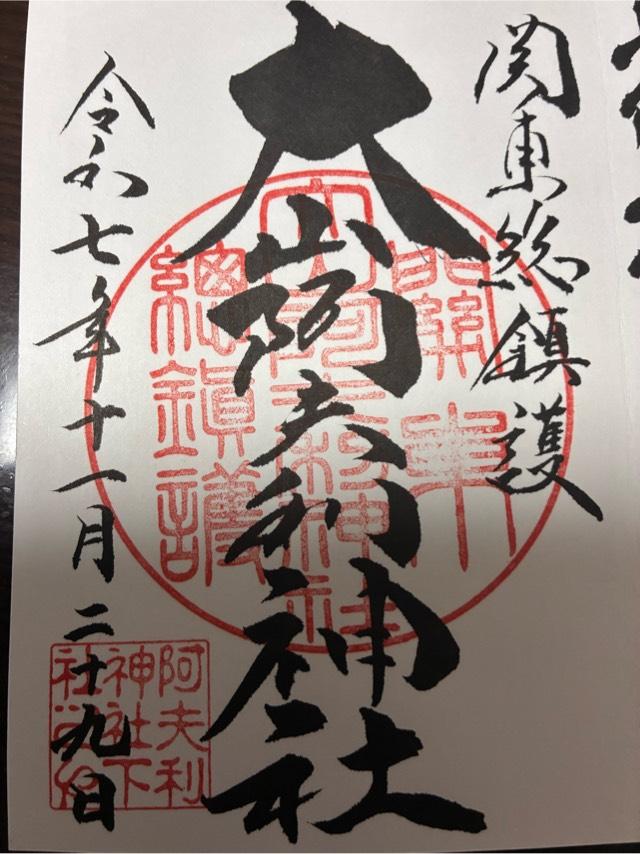 関東総鎮護
大山阿夫利神社
令和七年十一月二十九日
關東
大山阿夫利神社
總鎮護
阿夫利
神社下
社